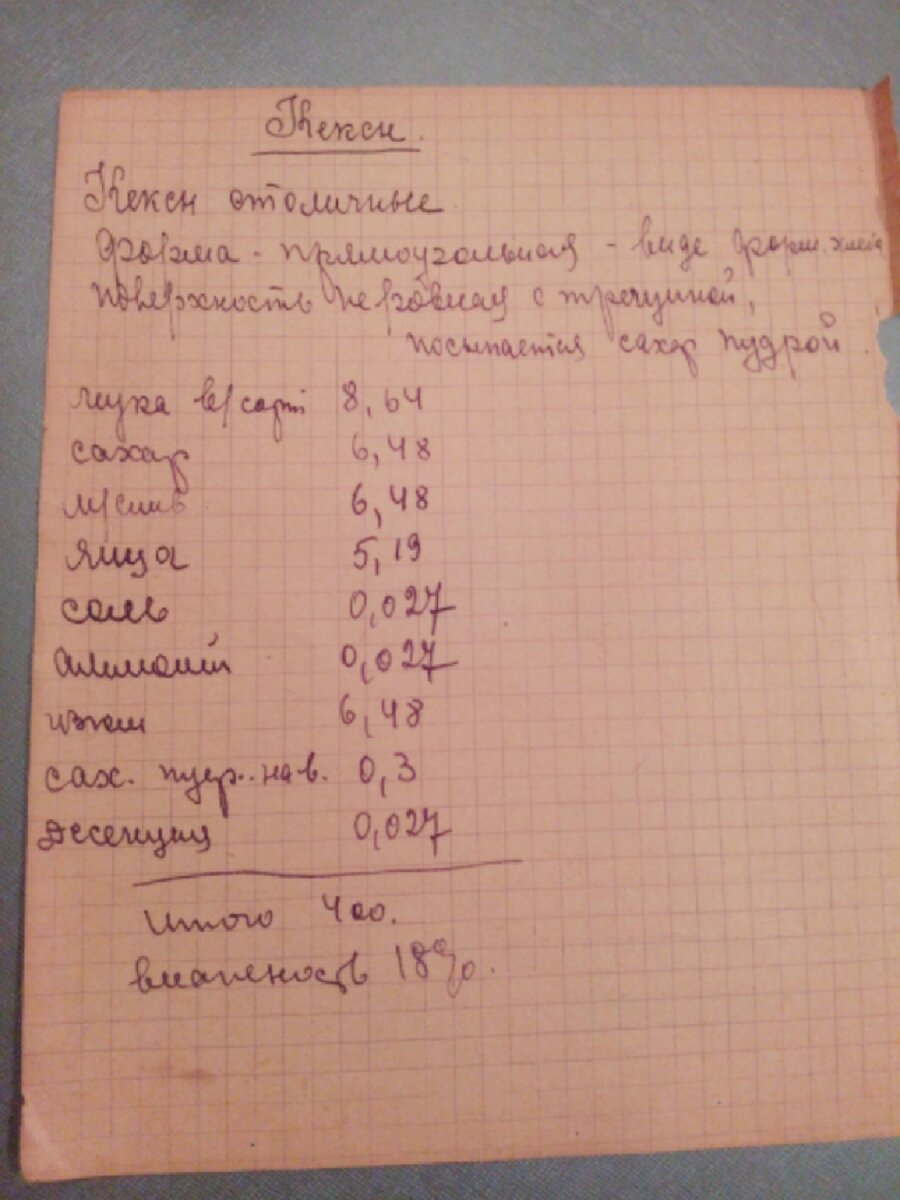 Кексы.
Кексы столичные
Форма - прямоугольная - виде форм. хлеба
поверхность неровная с трещиной,
посыпается сахар пудрой.
мука в/сорт 8,64
сахар 6,48
м/слив 6,48
яйца 5,19
соль 0,027
аммоний 0,027
изюм 6,48
сах. пудр. на в. 0,3
эссенция 0,027
Итого 400.
влажность 18%.